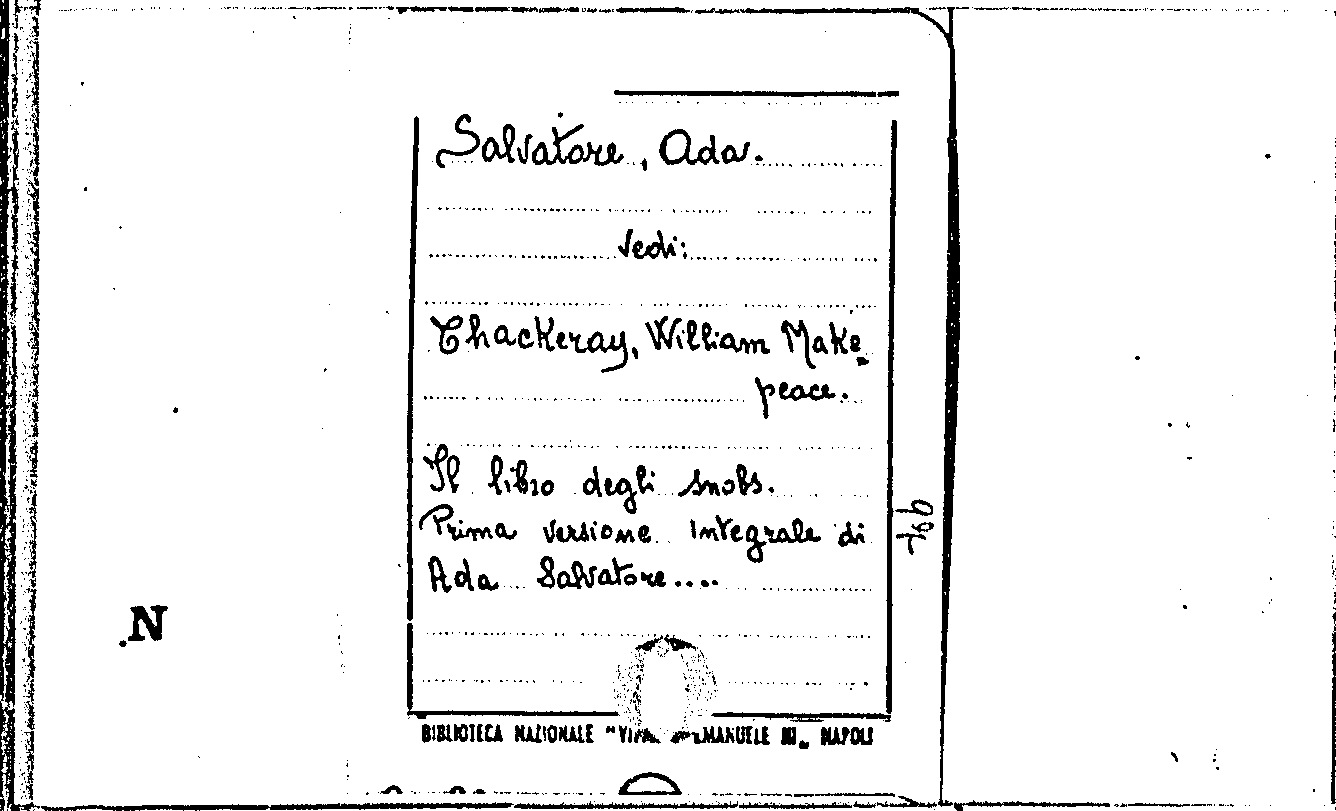 Salvatore, Ada.
vedi:
Thackeray, William Make-
peace.
Il libro degli snobs.
Prima versione integrale di
Ada Salvatore....
N
BIBLIOTECA NAZIONALE "VI EMANUELE III„ NAPOLI